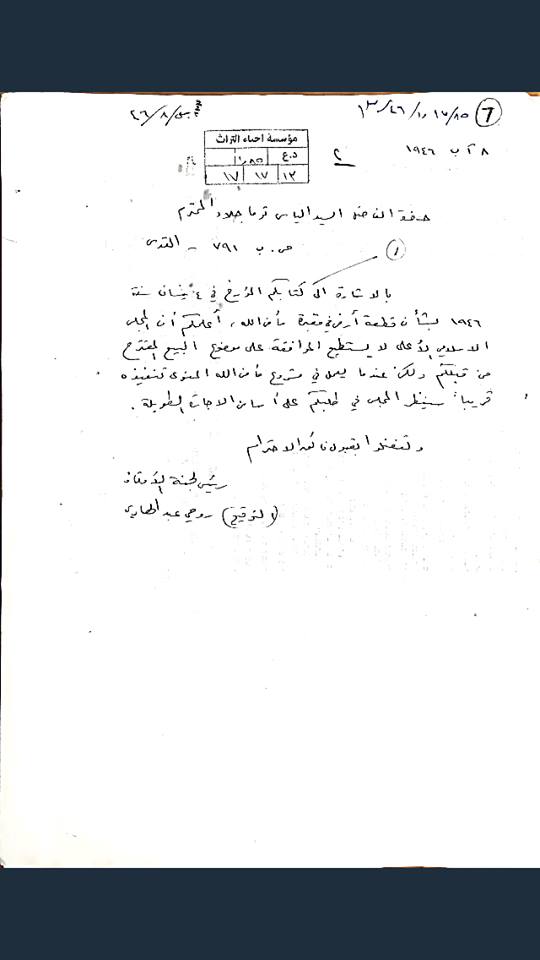 ٨ آب ١٩٤٦
مؤسسة احياء التراث
د.ع ١١٫٨٥
١٣ ١٧ ١٧
٢
حضرة الفاضل السيد الياس توما جلاد المحترم
ص. ب ٧٩١ - القدس
١
بالاشارة الى كتابكم المؤرخ في ٤ نيسان سنة
١٩٤٦ بشأن قطعة أرض في مقبرة مأمن الله، أعلمكم أن المجلس
الاسلامي الأعلى لا يستطيع الموافقة على موضوع البيع المقترح
من قبلكم ولكن عندما يعمل في مشروع مأمن الله المنوى تنفيذه
قريباً سينظر المجلس في طلبكم على أساس الاجارة الطويلة.
وتفضلوا بقبول فائق الاحترام
رئيس لجنة الأوقاف
(التوقيع) روحي عبد الهادي